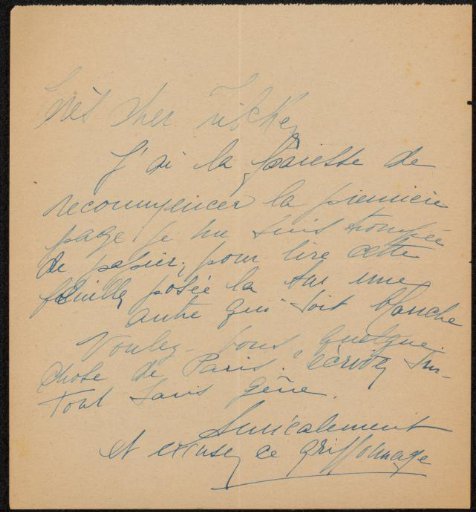 Très cher
J'ai la paresse de
recommencer la première
page je me suis trompée
de papier, pour lire cette
feuille, posez la sur une
autre qui soit blanche
Voulez-vous quelque
chose de Paris. écrivez sur-
tout sans gêne.
Amicalement
et excusez ce griffonnage